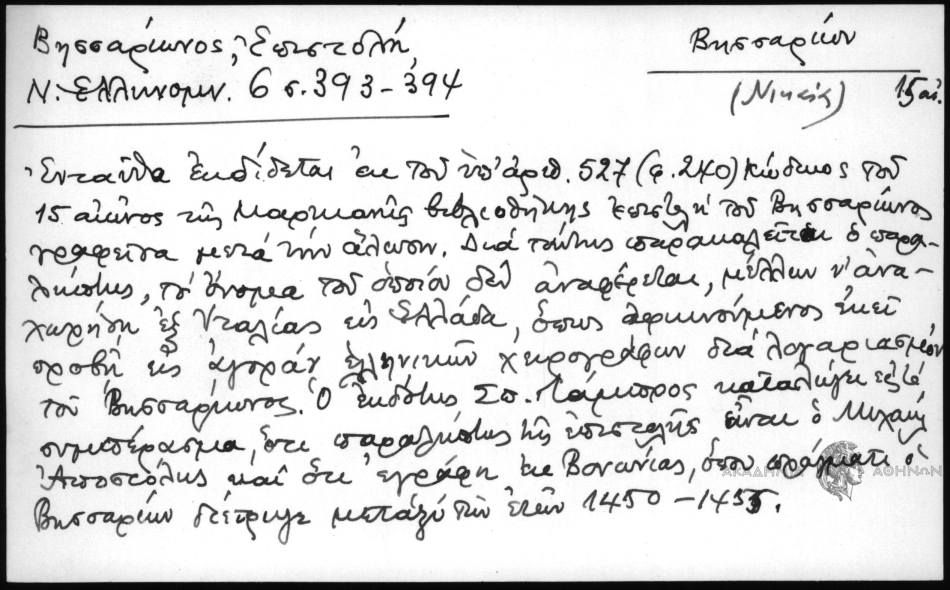 Βησσαρίωνος, Ἐπιστολή
Βησσαρίων
Ν. Ἑλληνομν. 6 σ. 393-394
(Νικαίας) 15 αἰ.
Ἐνταῦθα ἐκδίδεται ἐκ τοῦ ὑπ' ἀριθ. 527 (φ. 240) κώδικος τοῦ
15 αἰῶνος τῆς Μαρκιανῆς βιβλιοθήκης ἐπιστολή τοῦ Βησσαρίωνος
γραφεῖσα μετά τήν ἅλωσιν. Διά ταύτης παρακαλεῖται ὁ παρα-
λήπτης, τό ὄνομα τοῦ ὁποίου δέν ἀναφέρεται, μέλλων ν' ἀνα-
χωρήσῃ ἐξ Ἰταλίας εἰς Ἑλλάδα, ὅπως ἀφικνούμενος ἐκεῖ
προβῇ εἰς ἀγοράν ἑλληνικῶν χειρογράφων διά λογαριασμόν
τοῦ Βησσαρίωνος. Ὁ ἐκδότης Σπ. Λάμπρος καταλήγει εἰς τό
συμπέρασμα, ὅτι παραλήπτης τῆς ἐπιστολῆς εἶναι ὁ Μιχαήλ
Ἀποστόλης καί ὅτι ἐγράφη ἐκ Βονωνίας, ὅπου πράγματι ὁ
Βησσαρίων διέτριψε μεταξύ τῶν ἐτῶν 1450-1455.
ΑΚΑΔΗΜΙΑ ΑΘΗΝΩΝ